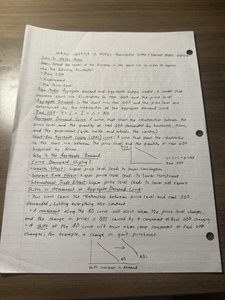 Macro Chapter 13 Notes: Aggregate
Intro to AD/AS Model
Goal: extend the center of the Economy in the short run in order to explain
why the following fluctuate:
• Real GDP
• Employment
• The Price Level
Key Model: Aggregate Demand and Aggregate Supply Model: A model that
explains short run fluctuations in real GDP and the price level
Aggregate Demand: In the short run, real GDP and the price level are
determined by the intersection of the Aggregate Demand curve
Real GDP Y = C + I + G + NX
Aggregate Demand Curve: A curve that shows the relationship between the
price level and the quantity of real GDP demanded by households, firms,
and the government (both inside and outside the country)
Short-Run Aggregate Supply (SRAS): A curve that shows the relationship
in the short run between the price level and the quantity of real GDP
supplied by firms.
Why is the Aggregate Demand
Curve Downward Sloping?
Wealth Effect: Higher price level leads to lower consumption
Interest Rate Effect: Higher price level leads to lower investment
International Trade Effect: Higher price level leads to lower net exports
Shifts vs Movements of Aggregate Demand Curve:
• This curve shows the relationship between price level and real GDP
demanded, holding everything else constant
• A movement along the AD curve will occur when the price level changes,
and the change in prices is NOT caused by a component of real GDP changing.
• A shift of the AD curve will occur when some component of Real GDP
changes; for example, a change in govt purchases.
AD1
Shift: increase in demand